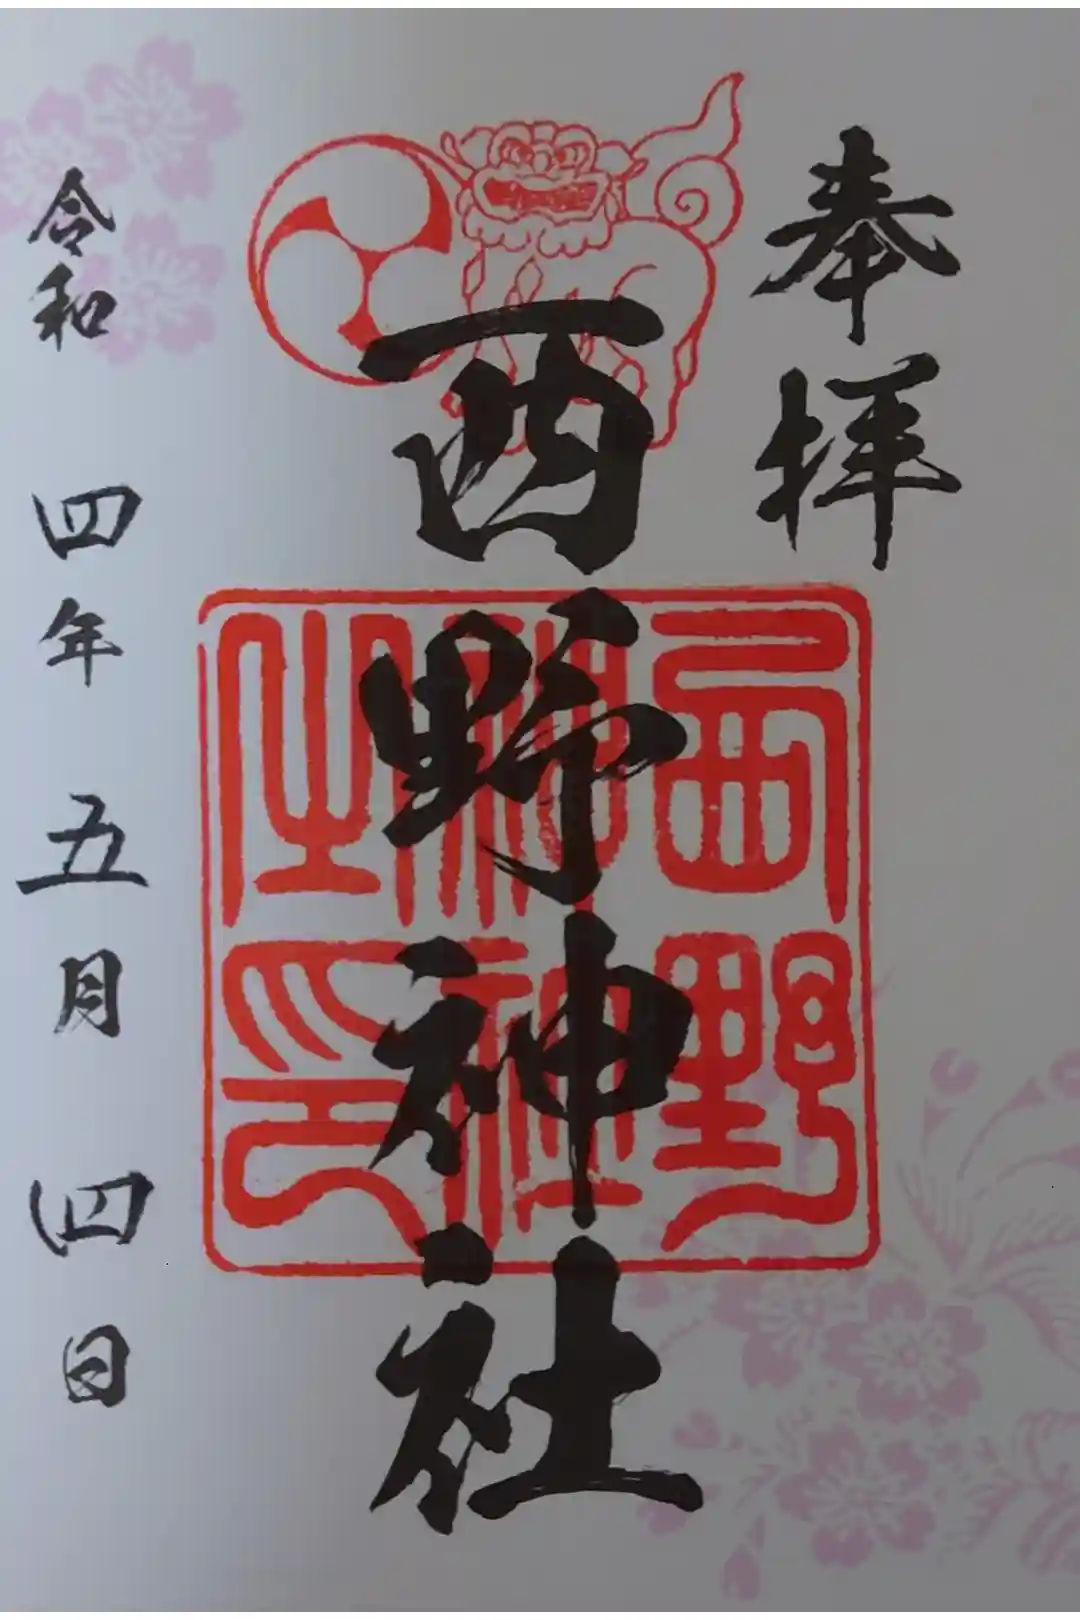 奉拝
西野神社
西野神社之印
令和四年五月四日